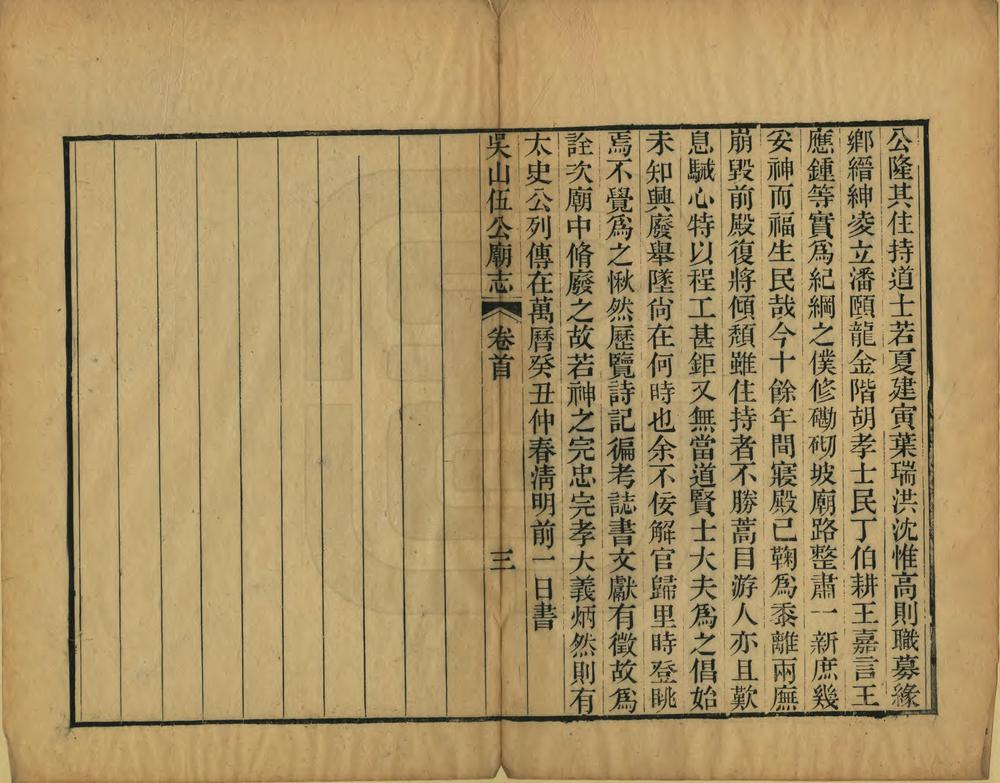 公隆其住持道士若夏建寅葉瑞洪沈惟高則職募緣
鄉縉紳凌立潘頤龍金階胡孝士民丁伯耕王嘉言王
應鍾等實爲紀綱之僕修磡砌坡廟路整肅一新庶幾
妥神而福生民哉今十餘年間寢殿已鞠爲黍離兩廡
崩毀前殿復將傾頽雖住持者不勝蒿目游人亦且歎
息駴心特以程工甚鉅又無當道賢士大夫爲之倡始
未知興廢舉墜尙在何時也余不佞解官歸里時登眺
焉不覺爲之愀然歷覽詩記徧考誌書文獻有徵故爲
詮次廟中脩廢之故若神之完忠完孝大義炳然則有
太史公列傳在萬曆癸丑仲春淸明前一日書
吳山伍公廟志 卷首 三